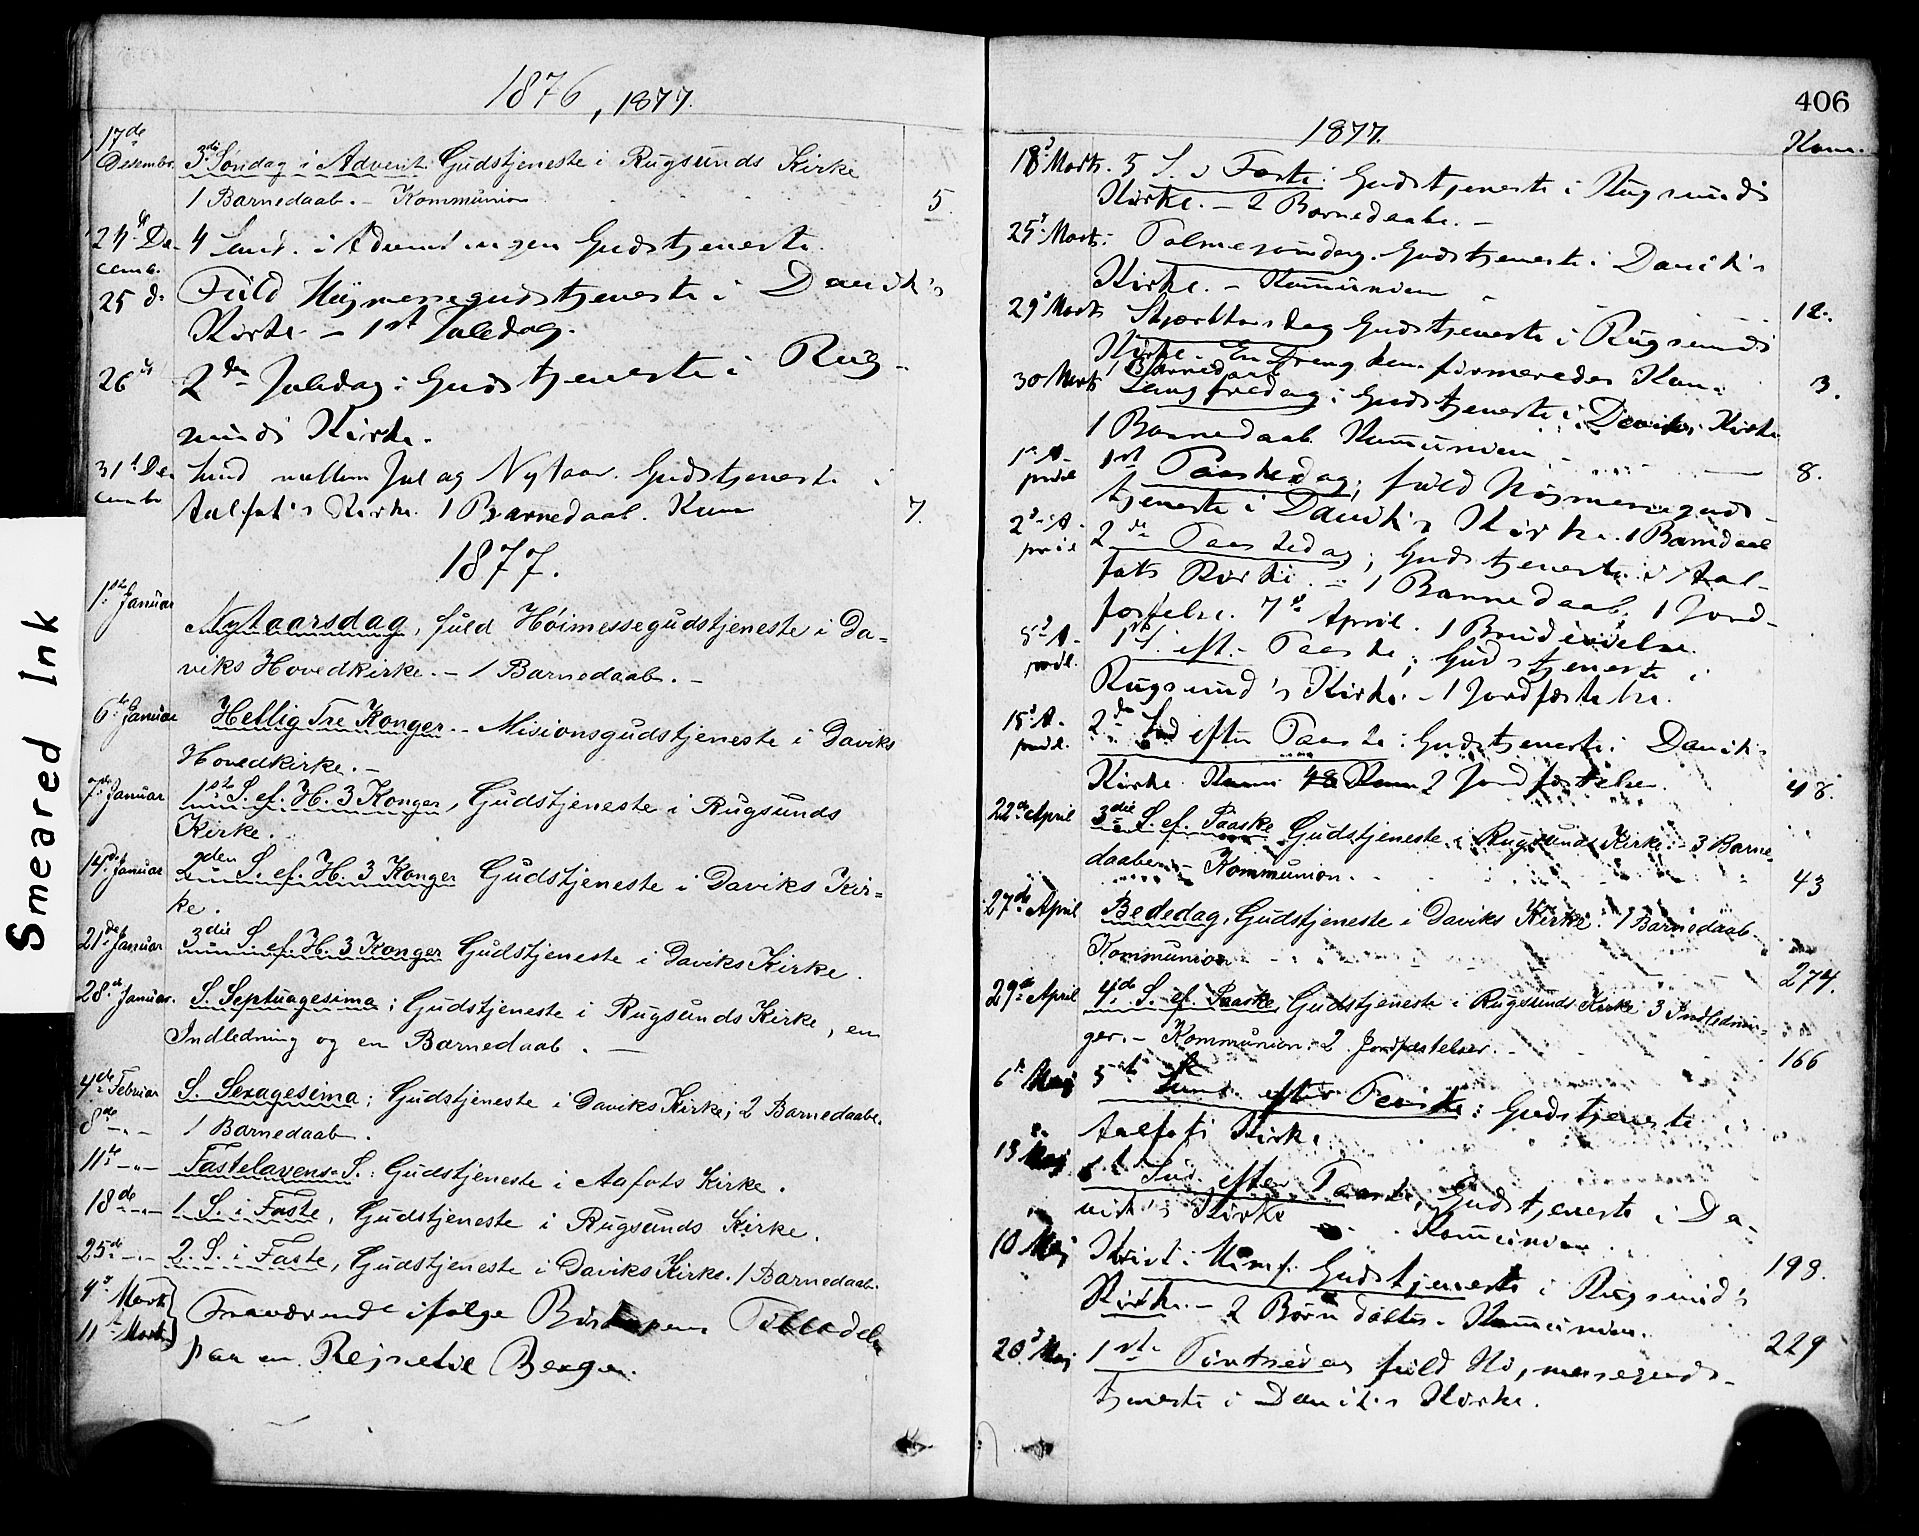 1876, 1877.
17de Desembr. 3die Søndag i Advent: Gudstjeneste i Rugsunds Kirke
1 Barnedaab. – Kommunion 5.
24de De- 4 Sønd. i Advent ingen Gudstjeneste.
cemb.
25 d. Fuld Høimessegudstjeneste i Davik's
Kirke – 1ste Juledag.
26 2den Juledag: Gudstjeneste i Rug-
sunds Kirke.
31te De- Sønd mellem Jul og Nytaar. Gudstjeneste i
cembr Aalfot's Kirke. 1 Barnedaab. Kom 7.
1877.
1ste Januar Nytaarsdag, fuld Høimessegudstjeneste i Da-
viks Hovedkirke. – 1 Barnedaab. –
6te Januar Hellig Tre Konger. – Misionsgudstjeneste i Daviks
Hovedkirke. –
7de Januar 1ste S. ef. H. 3 Konger, Gudstjeneste i Rugsunds
Kirke.
14de Januar 2den S. ef. H. 3 Konger Gudstjeneste i Daviks Kir=
ke.
21de Januar 3die S. ef. H. 3 Konger Gudstjeneste i Daviks Kirke.
28de Januar. S. Septuagesima; Gudstjeneste i Rugsunds Kirke, en
Indledning og en Barnedaab. –
4de Februar S. Sexagesima; Gudstjeneste i Daviks Kirke; 2 Barnedaabe.
8de –"– 1 Barnedaab.
11te –"– Fastelavens S.: Gudstjeneste i Aafots Kirke.
18de –"– 1 S. i Faste, Gudstjeneste i Rugsunds Kirke.
25de –"– 2. S. i Faste, Gudstjeneste i Daviks Kirke. 1 Barnedaab.
4de Marts Fraværende ifølge Biskopens Tilladelse
11te Marts paa en Rejse til Bergen.
Smeared Ink
406
1877.
Kom.
18de Marts. 5 S. i Faste: Gudstjeneste i Rugsunds
Kirke. – 2 Barnedaabe. –
25de Marts: Palmesøndag. Gudstjeneste i Davik's
Kirke. – Kommunion – 12.
29de Marts Skjærthorsdag Gudstjeneste i Rugsunds
Kirke. En Dreng konfirmeredes Kom. 3.
1 Barnedaab
30 Marts Langfredag: Gudstjeneste i Daviks Kirke
1 Barnedaab Kommunion 8.
1ste A- 1ste Paaskedag; fuld Høimesseguds-
pril tjeneste i Davik's Kirke. 1 Barnedaab
2den A- 2den Paaskedag; Gudstjeneste i Aal-
pril fots Kirke. – 1 Barnedaab; 1 Jord-
festelse. 7de April. 1 Brudevielse.
8de A- 1ste S. eft. Paaske; Gudstjeneste i
pril. Rugsund's Kirke. – 1 Jordfæstelse.
15de A- 2den Sønd efter Paaske: Gudstjeneste i Davik's
pril. Kirke. Kom 48 Kom 2 Jordfæstelser. 48.
22de April 3die S. ef. Paaske Gudstjeneste i Rugsunds Kirke. – 3 Barne-
daaber. – Kommunion. 43
27de April Bededag, Gudstjeneste i Daviks Kirke. 1 Barnedaab
Kommunion 274.
29de April 4de S. ef. Paaske Gudstjeneste i Rugsunds Kirke 3 Indlednin-
ger. – Kommunion. 2 Jordfæstelser. 166
6te Maj 5te Sønd. efter Paaske: Gudstjeneste i
Aalfots Kirke
13 Maj 6te Sønd. efter Paaske, Gudstjeneste i Da-
vik's Kirke Kommunion 198.
10 Maj Kristi Himf. Gudstjeneste i Rugsund's
Kirke. – 2 Børn døbtes. Kommunion. 229
20de Maj 1ste Pintsedag fuld Høimesseguds-
tjeneste i Davik's Kirke.